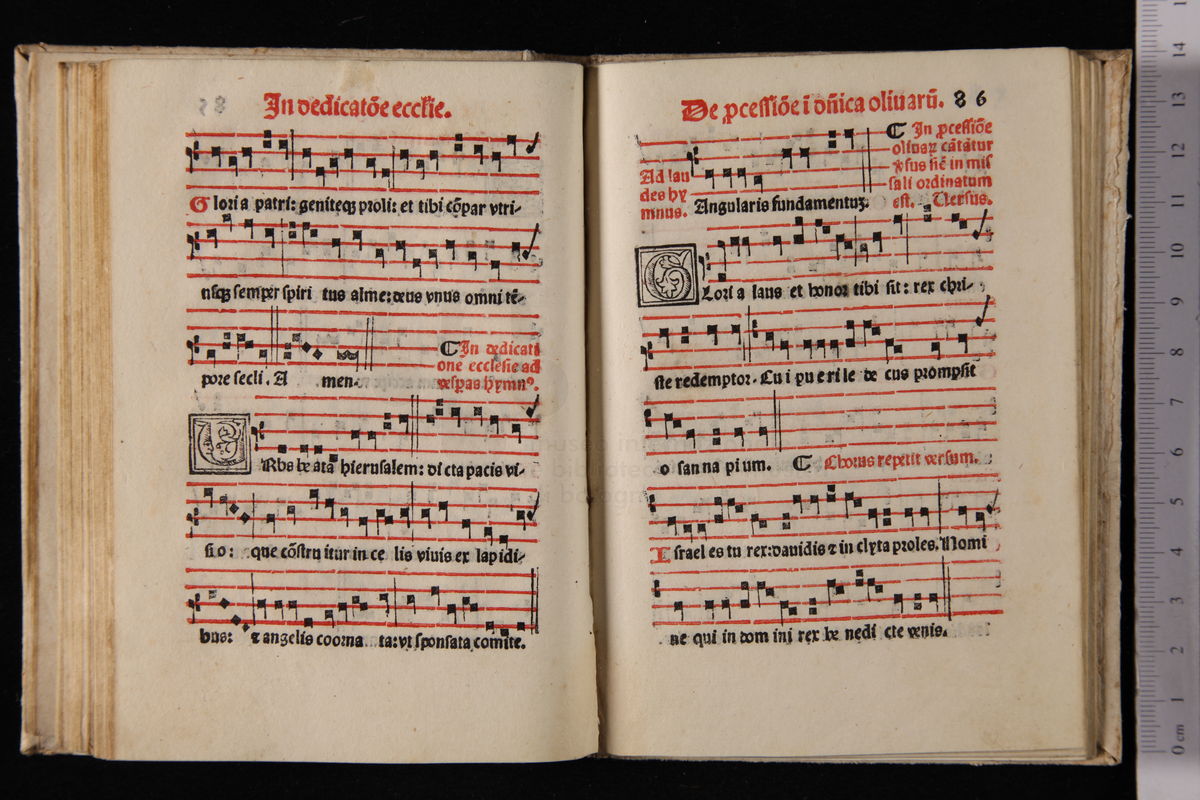 In dedicatõe eccl'ie.
Gloria patri: geniteqꝫ proli: et tibi cõpar vtri-
usqꝫ semper spiri tus alme: deus vnus omni tẽ-
pore secli. A men.
In dedicati
one ecclesie ad
vesp̱as hymnꝰ.
VRbs be ata hierusalem: di cta pacis vi-
si o: que cõstru itur in ce lis viuis ex lapidi-
bus: ⁊ angelis coorna ta: vt sponsata comite.
De ꝓcessiõe i dñica oliuarũ. 86
Ad lau
des hy
mnus.
Angularis fundamentuꝫ.
In ꝓcessiõe
oliuaꝝ cãtatur
in mis
sali ordinatum
est. Uersus.
GLori a laus et honor tibi sit: rex chri-
ste redemptor. Cu i pu e ri le de cus prompsit
o san na pi um. Chorus repetit versum.
Israel es tu rex: dauidis ⁊ in clyta proles. Nomi
ne qui in dom ini rex be nedi cte venis.
0 cm 1 2 3 4 5 6 7 8 9 10 11 12 13 14